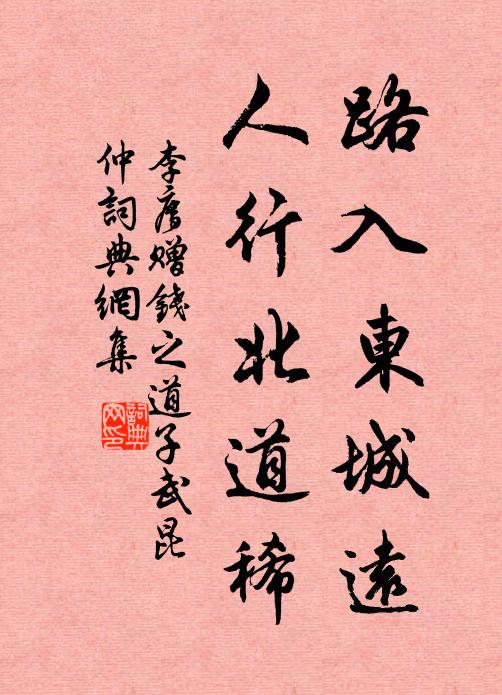 路入東城遠
人行北道稀
李廌贈錢之道子武昆
仲詞典網集
詞典网印